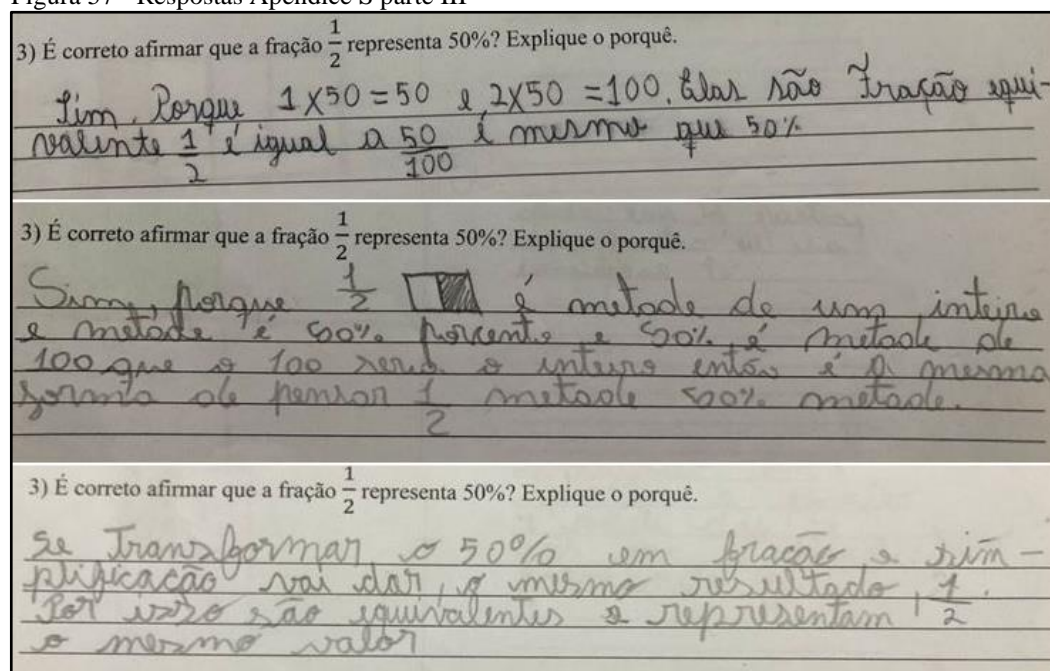 Figura 37 - Respostas Apêndice S parte III
3) É correto afirmar que a fração 1/2 representa 50%? Explique o porquê.
Sim, Porque 1x50=50 e 2x50=100. Elas são Fração equi-
valente 1/2 é igual a 50/100 é mesmo que 50%
3) É correto afirmar que a fração 1/2 representa 50%? Explique o porquê.
Sim, porque 1/2 é metade de um inteiro
e metade é 50% porcento e 50% é metade de
100 que o 100 seria o inteiro então é a mesma
forma de pensar 1/2 metade 50% metade.
3) É correto afirmar que a fração 1/2 representa 50%? Explique o porquê.
Se Transformar o 50% em fração e sim-
plificação vai dar, o mesmo resultado, 1/2.
Por isso são equivalentes e representam
o mesmo valor